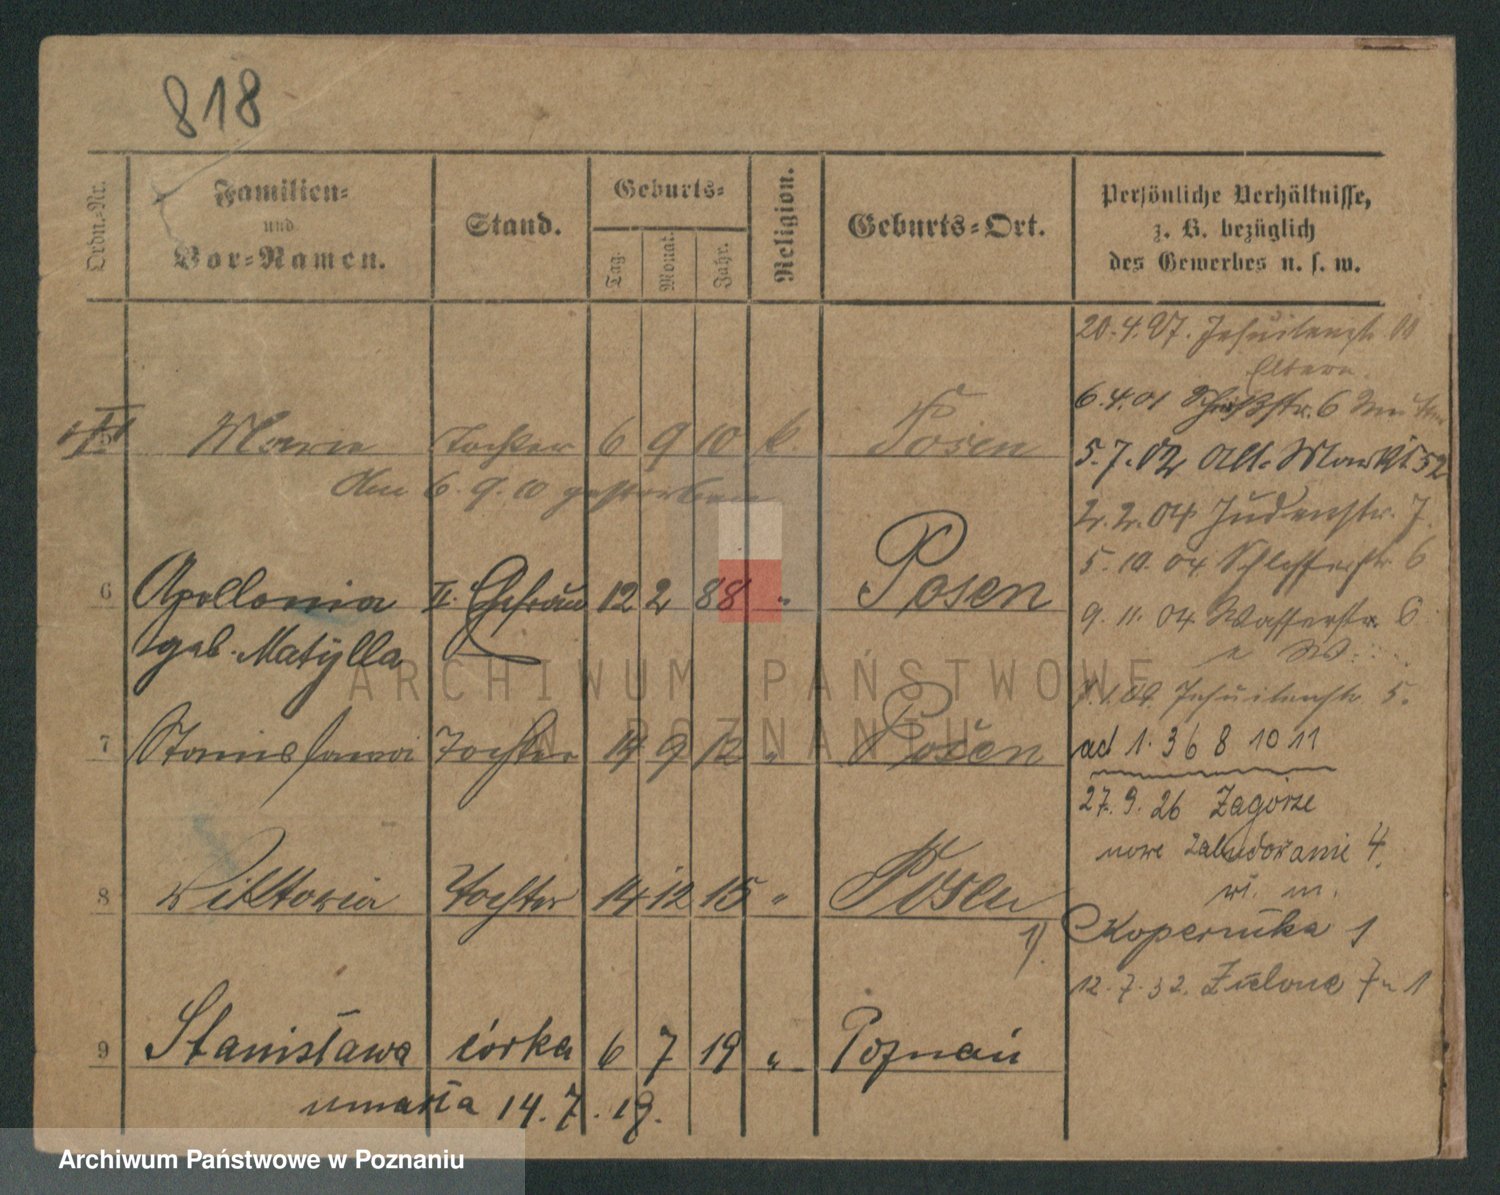 818
Ordn.-Nr.
Familien-
und
Vor-Namen.
Stand.
Geburts-
Tag.
Monat.
Jahr.
Religion.
Geburts-Ort.
Persönliche Verhältnisse,
z. B. bezüglich
des Gewerbes u. s. w.
5 Marie Tochter 6 9 10 k. Posen
Am 6.9.10 gestorben
6 Apollonia II. Ehefrau 12 2 88 " Posen
geb. Matylla
7 Stanislawa Tochter 14 9 12 " Posen
8 Wiktoria Tochter 14 12 15 " Posen
1).
9 Stanisława córka 6 7 19 " Poznań
umarła 14.7.19.
20.4.97. Jesuitenstr.
Eltern.
6.4.01 6
5.7.02 Alt. Markt 52
2.2.04 Judenstr. 7.
5.10.04 6
9.11.04 Wasserstr. 6
Jesuitenstr 5.
ad 1. 3 6 8 10 11
27.9.26 Zagórze
nowe zabudowanie 4.
wł. m.
Kopernika 1
12.7.32. Zielone
ARCHIWUM PAŃSTWOWE
W POZNANIU
Archiwum Państwowe w Poznaniu